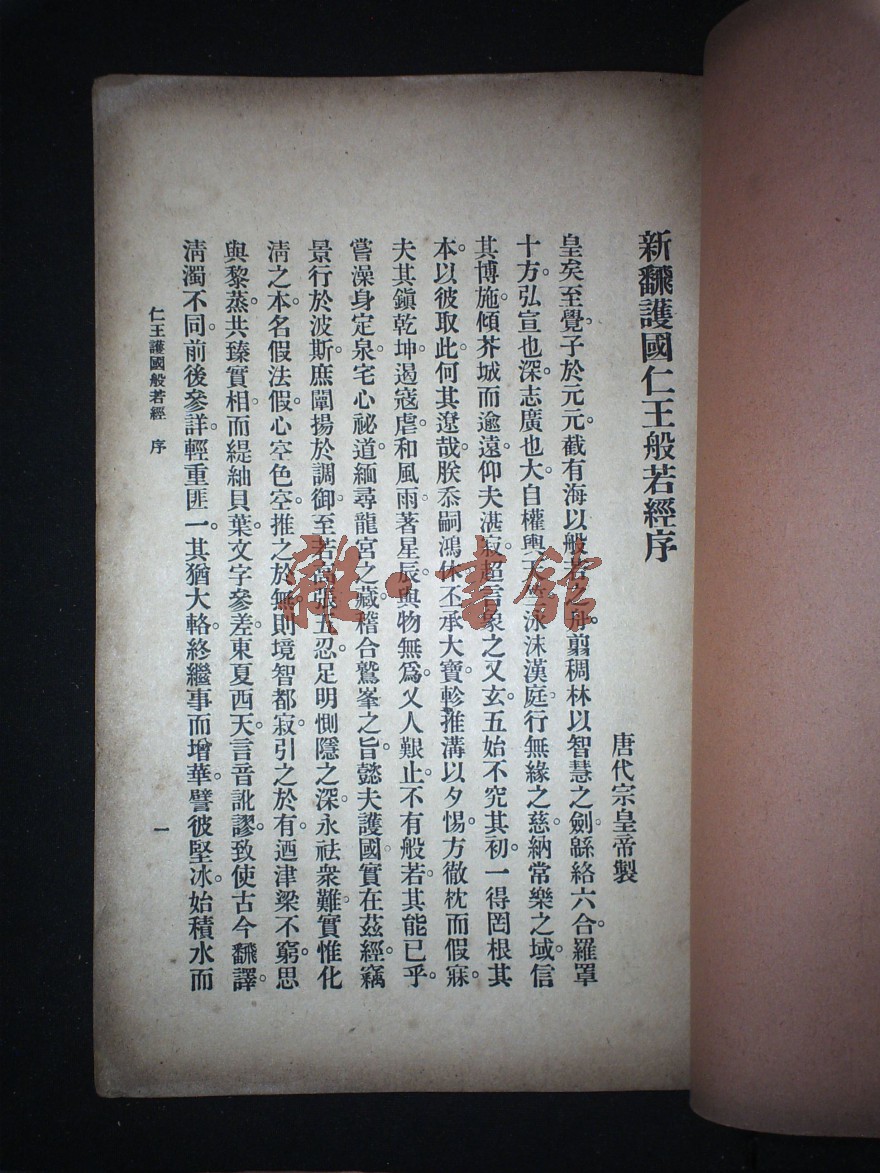 新飜護國仁王般若經序
唐代宗皇帝製
皇矣至覺子於元元。截有海以般若之舟。翦稠林以智慧之劍。緜絡六合。羅罩
十方。弘宣也。深志廣也。大自權輿天竺。泳沫漢庭。行無緣之慈。納常樂之域。信
其博施。傾芥城而逾遠。仰夫湛寂。超言象之又玄。五始不究其初。一得罔根其
本。以彼取此。何其遼哉。朕忝嗣鴻休。丕承大寶。軫推溝以夕惕。方徹枕而假寐。
夫其鎭乾坤。遏寇虐。和風雨。著星辰。與物無爲。乂人艱止。不有般若。其能已乎。
嘗澡身定泉。宅心祕道。緬尋龍宮之藏。稽合鷲峯之旨。懿夫護國。實在茲經。竊
景行於波斯。庶闡揚於調御。至若高張五忍。足明惻隱之深。永祛衆難。實惟化
淸之本。名假法假。心空色空。推之於無。則境智都寂。引之於有。迺津梁不窮。思
與黎蒸。共臻實相。而緹紬貝葉。文字參差。東夏西天。言音訛謬。致使古今飜譯
淸濁不同。前後參詳。輕重匪一。其猶大輅。終繼事而增華。譬彼堅冰。始積水而
仁王護國般若經 序
一
雜·書館